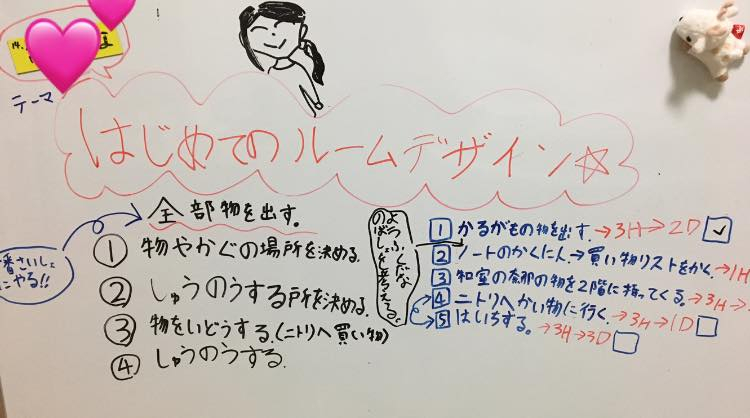 テーマ
はじめてのルームデザイン☆
全部物を出す。
一番さいしょにやる!!
① 物やかぐの場所を決める。
② しゅうのうする所を決める。
③ 物をいどうする。(ニトリへ買い物)
④ しゅうのうする。
ようふくだな
のばしょを考える。
1 かるがもの物を出す。→3H→2D ✓
2 ノートのかくにん。→買い物リストをかく。→1H
3 和室の奈那の物を2階に持ってくる。→3H→
4 ニトリへかい物に行く。→3H→1D
5 はいちする。→3H→3D